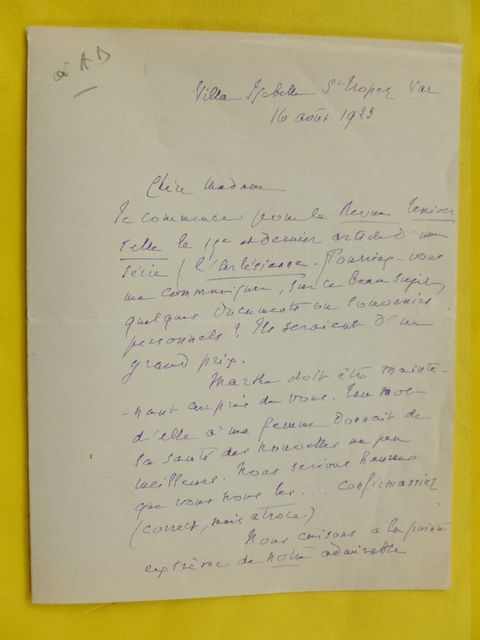 à A D
Villa Isabelle St Tropez Var
16 août 1923
Chère Madame
Je commence pour la Revue Univer
selle le 19e et dernier article d'une
série / l'Arlésienne. Pourriez-vous
me communiquer, sur ce beau sujet,
quelques documents ou souvenirs
personnels ? Ils seraient d'un
grand prix.
Marthe doit être mainte-
-nant auprès de vous. Un mot
d'elle à ma femme donnait de
sa santé des nouvelles un peu
meilleures. Nous serions heureux
que vous nous les... confirmassiez
(correct, mais atroce.)
Nous cuisons à la pointe
extrême de notre admirable